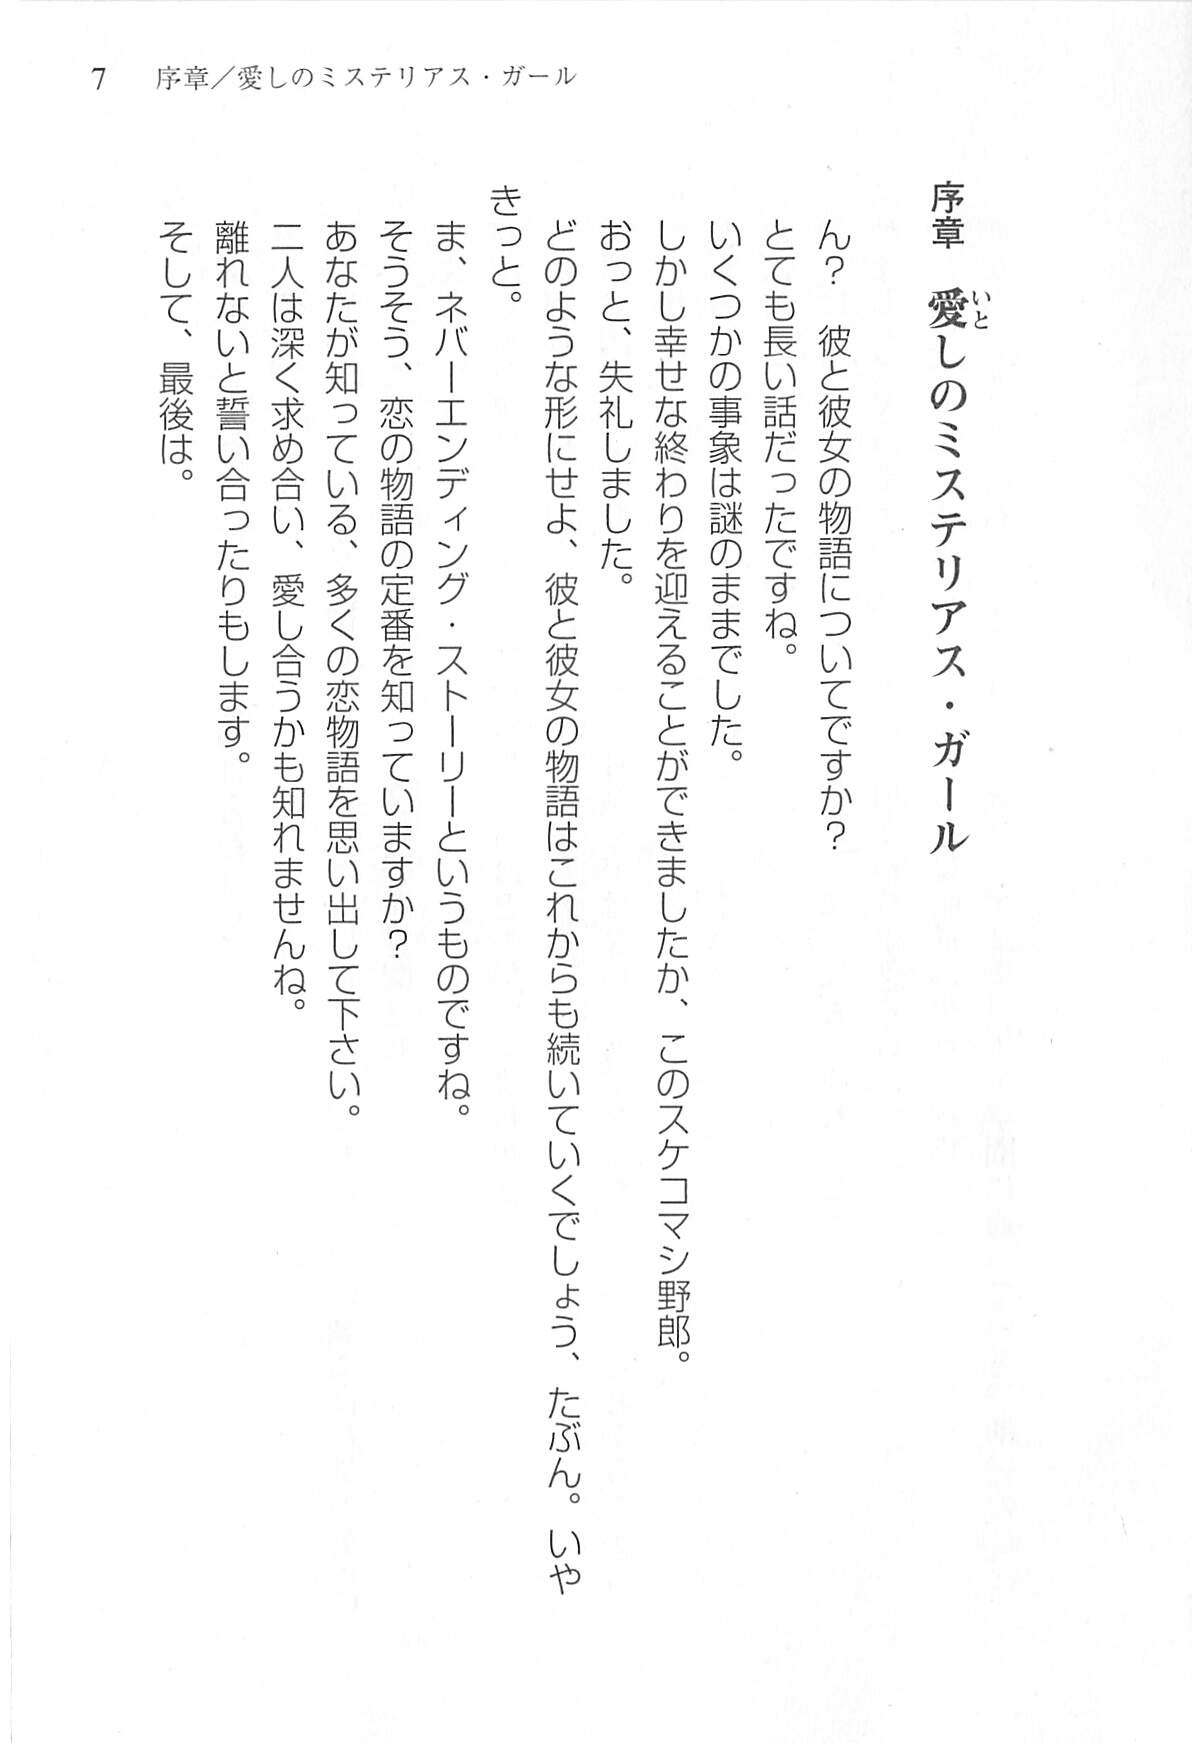 7 序章／愛しのミステリアス・ガール
序章　愛しのミステリアス・ガール
いと
ん？　彼と彼女の物語についてですか？
とても長い話だったですね。
いくつかの事象は謎のままでした。
しかし幸せな終わりを迎えることができましたか、このスケコマシ野郎。
おっと、失礼しました。
どのような形にせよ、彼と彼女の物語はこれからも続いていくでしょう、たぶん。いや
きっと。
ま、ネバーエンディング・ストーリーというものですね。
そうそう、恋の物語の定番を知っていますか？
あなたが知っている、多くの恋物語を思い出して下さい。
二人は深く求め合い、愛し合うかも知れませんね。
離れないと誓い合ったりもします。
そして、最後は。